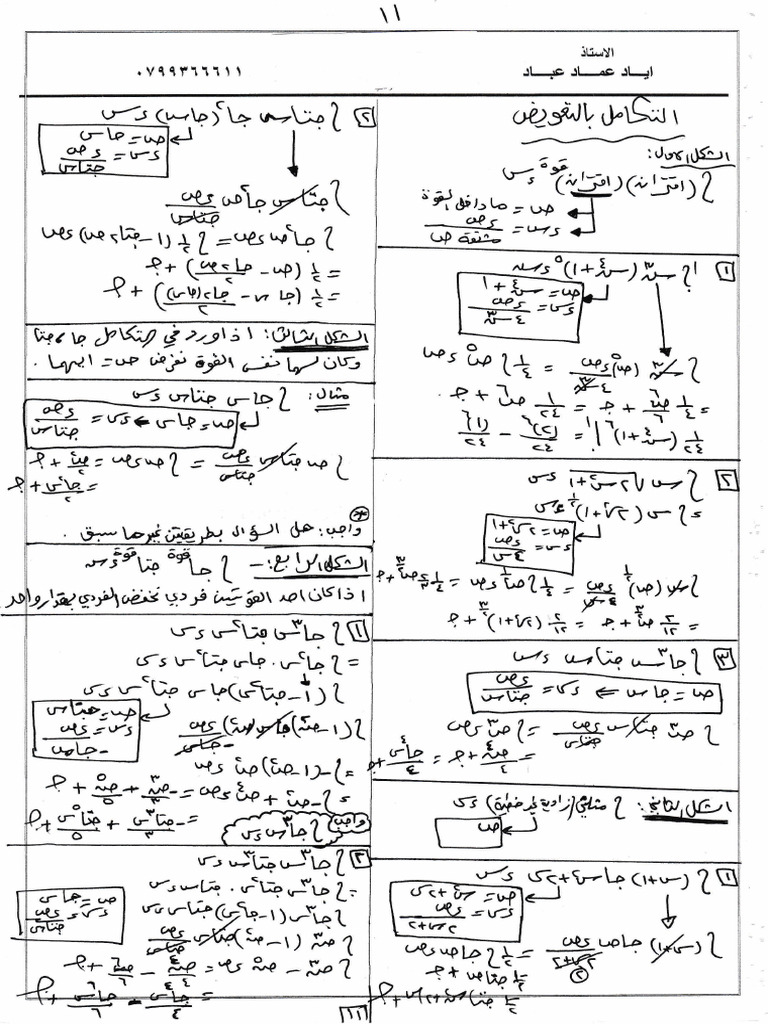 ١١
الاستاذ
اياد عماد عباد
٠٧٩٩٣٦٦٦١١
التكامل بالتعويض
الشكل الاول:
∫ (اقتران)(اقتران)^قوة ءس
ص = ما داخل القوة
ءس = ءص / مشتقة ص
١ ∫ س^٣ (س^٤ + ١)^٥ ءس
ص = س^٤ + ١
ءس = ءص / ٤س^٣
∫ س^٣ (ص)^٥ ءص / ٤س^٣ = ١/٤ ∫ ص^٥ ءص
= ١/٤ ص^٦/٦ + جـ = ١/٢٤ ص^٦ + جـ
١/٢٤ (س^٤ + ١)^٦ | = (٢)^٦/٢٤ − (١)^٦/٢٤
٢ ∫ س √(٢س^٢ + ١) ءس
∫ س (٢س^٢ + ١)^١/٢ ءس
ص = ٢س^٢ + ١
ءس = ءص / ٤س
∫ س (ص)^١/٢ ءص / ٤س = ١/٤ ∫ ص^١/٢ ءص = ١/٤ · ٢/٣ ص^٣/٢ + جـ
= ٢/١٢ ص^٣/٢ + جـ = ٢/١٢ (٢س^٢ + ١)^٣/٢ + جـ
٣ ∫ جا^٣س جتاس ءس
ص = جاس ⇐ ءس = ءص / جتاس
∫ ص^٣ جتاس ءص / جتاس = ∫ ص^٣ ءص
= ص^٤/٤ + جـ = جا^٤س/٤ + جـ
الشكل الثاني: ∫ مثلثي (زاوية غير خطية) ءس
ص
١ ∫ (س + ١) جا س^٢ + ٢س ءس
ص = س^٢ + ٢س
ءس = ءص / ٢س + ٢
∫ (س + ١) جاص ءص / ٢س + ٢ = ١/٢ ∫ جاص ءص
١/٢ جتاص + جـ
١/٢ جتا س^٢ + ٢س + جـ
٢ ∫ جتاس جا^٢(جاس) ءس
ص = جاس
ءس = ءص / جتاس
∫ جتاس جا^٢ص ءص / جتاس
∫ جا^٢ص ءص = ∫ ١/٢ (١ − جتا٢ص) ءص
= ١/٢ (ص − جا٢ص/٢) + جـ
= ١/٢ (جاس − جا٢(جاس)/٢) + جـ
الشكل الثالث: اذا ورد في التكامل جا، جتا
وكان لهما نفس القوة نفرض ص = ايهما.
مثال: ∫ جاس جتاس ءس
ص = جاس ⇐ ءس = ءص / جتاس
∫ ص جتاس ءص / جتاس = ∫ ص ءص = ص^٢/٢ + جـ
= جا^٢س/٢ + جـ
واجب: حل السؤال بطريقتين غير ما سبق.
الشكل الرابع:- ∫ جا^قوة جتا^قوة ءس
اذا كان احد القوتين فردي نخفض الفردي بمقدار واحد
١ ∫ جا^٣س جتا^٢س ءس
= ∫ جا^٢س . جاس جتا^٢س ءس
∫ (١ − جتا^٢س) جاس جتا^٢س ءس
ص = جتاس
ءس = ءص / −جاس
∫ (١ − ص^٢) جاس ص^٢ ءص / −جاس
= ∫ −(١ − ص^٢) ص^٢ ءص
∫ −ص^٢ + ص^٤ ءص = −ص^٣/٣ + ص^٥/٥ + جـ
= −جتا^٣س/٣ + جتا^٥س/٥ + جـ
واجب ∫ جا^٣س ءس
٢ ∫ جا^٣س جتا^٣س ءس
= ∫ جا^٣س جتا^٢س . جتاس ءس
∫ جا^٣س (١ − جا^٢س) جتاس ءس
ص = جاس
ءس = ءص / جتاس
∫ ص^٣ (١ − ص^٢) جتاس ءص / جتاس
∫ ص^٣ − ص^٥ ءص = ص^٤/٤ − ص^٦/٦ + جـ
= جا^٤س/٤ − جا^٦س/٦ + جـ